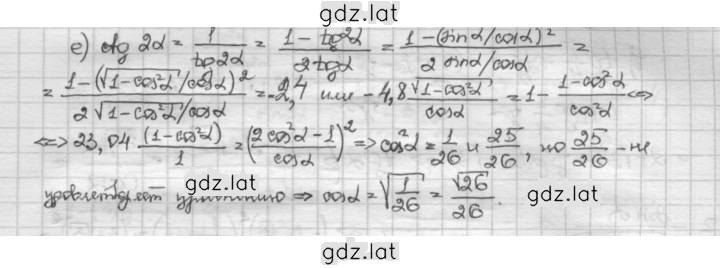 gdz.lat
е) ctg 2α = 1/tg2α = (1 - tg²α)/(2 tgα) = (1-(sinα/cosα)²)/(2 sinα/cosα) =
= (1-(√(1-cos²α)/cosα)²)/(2√(1-cos²α)/cosα) = -2,4 или -4,8 √(1-cos²α)/cosα = 1 - (1-cos²α)/cos²α <=>
<=> 23,04 · (1-cos²α)/1 = ((2cos²α-1)/cosα)² => cos²α = 1/26 и 25/26, но 25/26 - не
gdz.lat
удовлетворяет уравнению => cosα = √(1/26) = √26/26.
gdz.lat
gdz.lat
gdz.lat